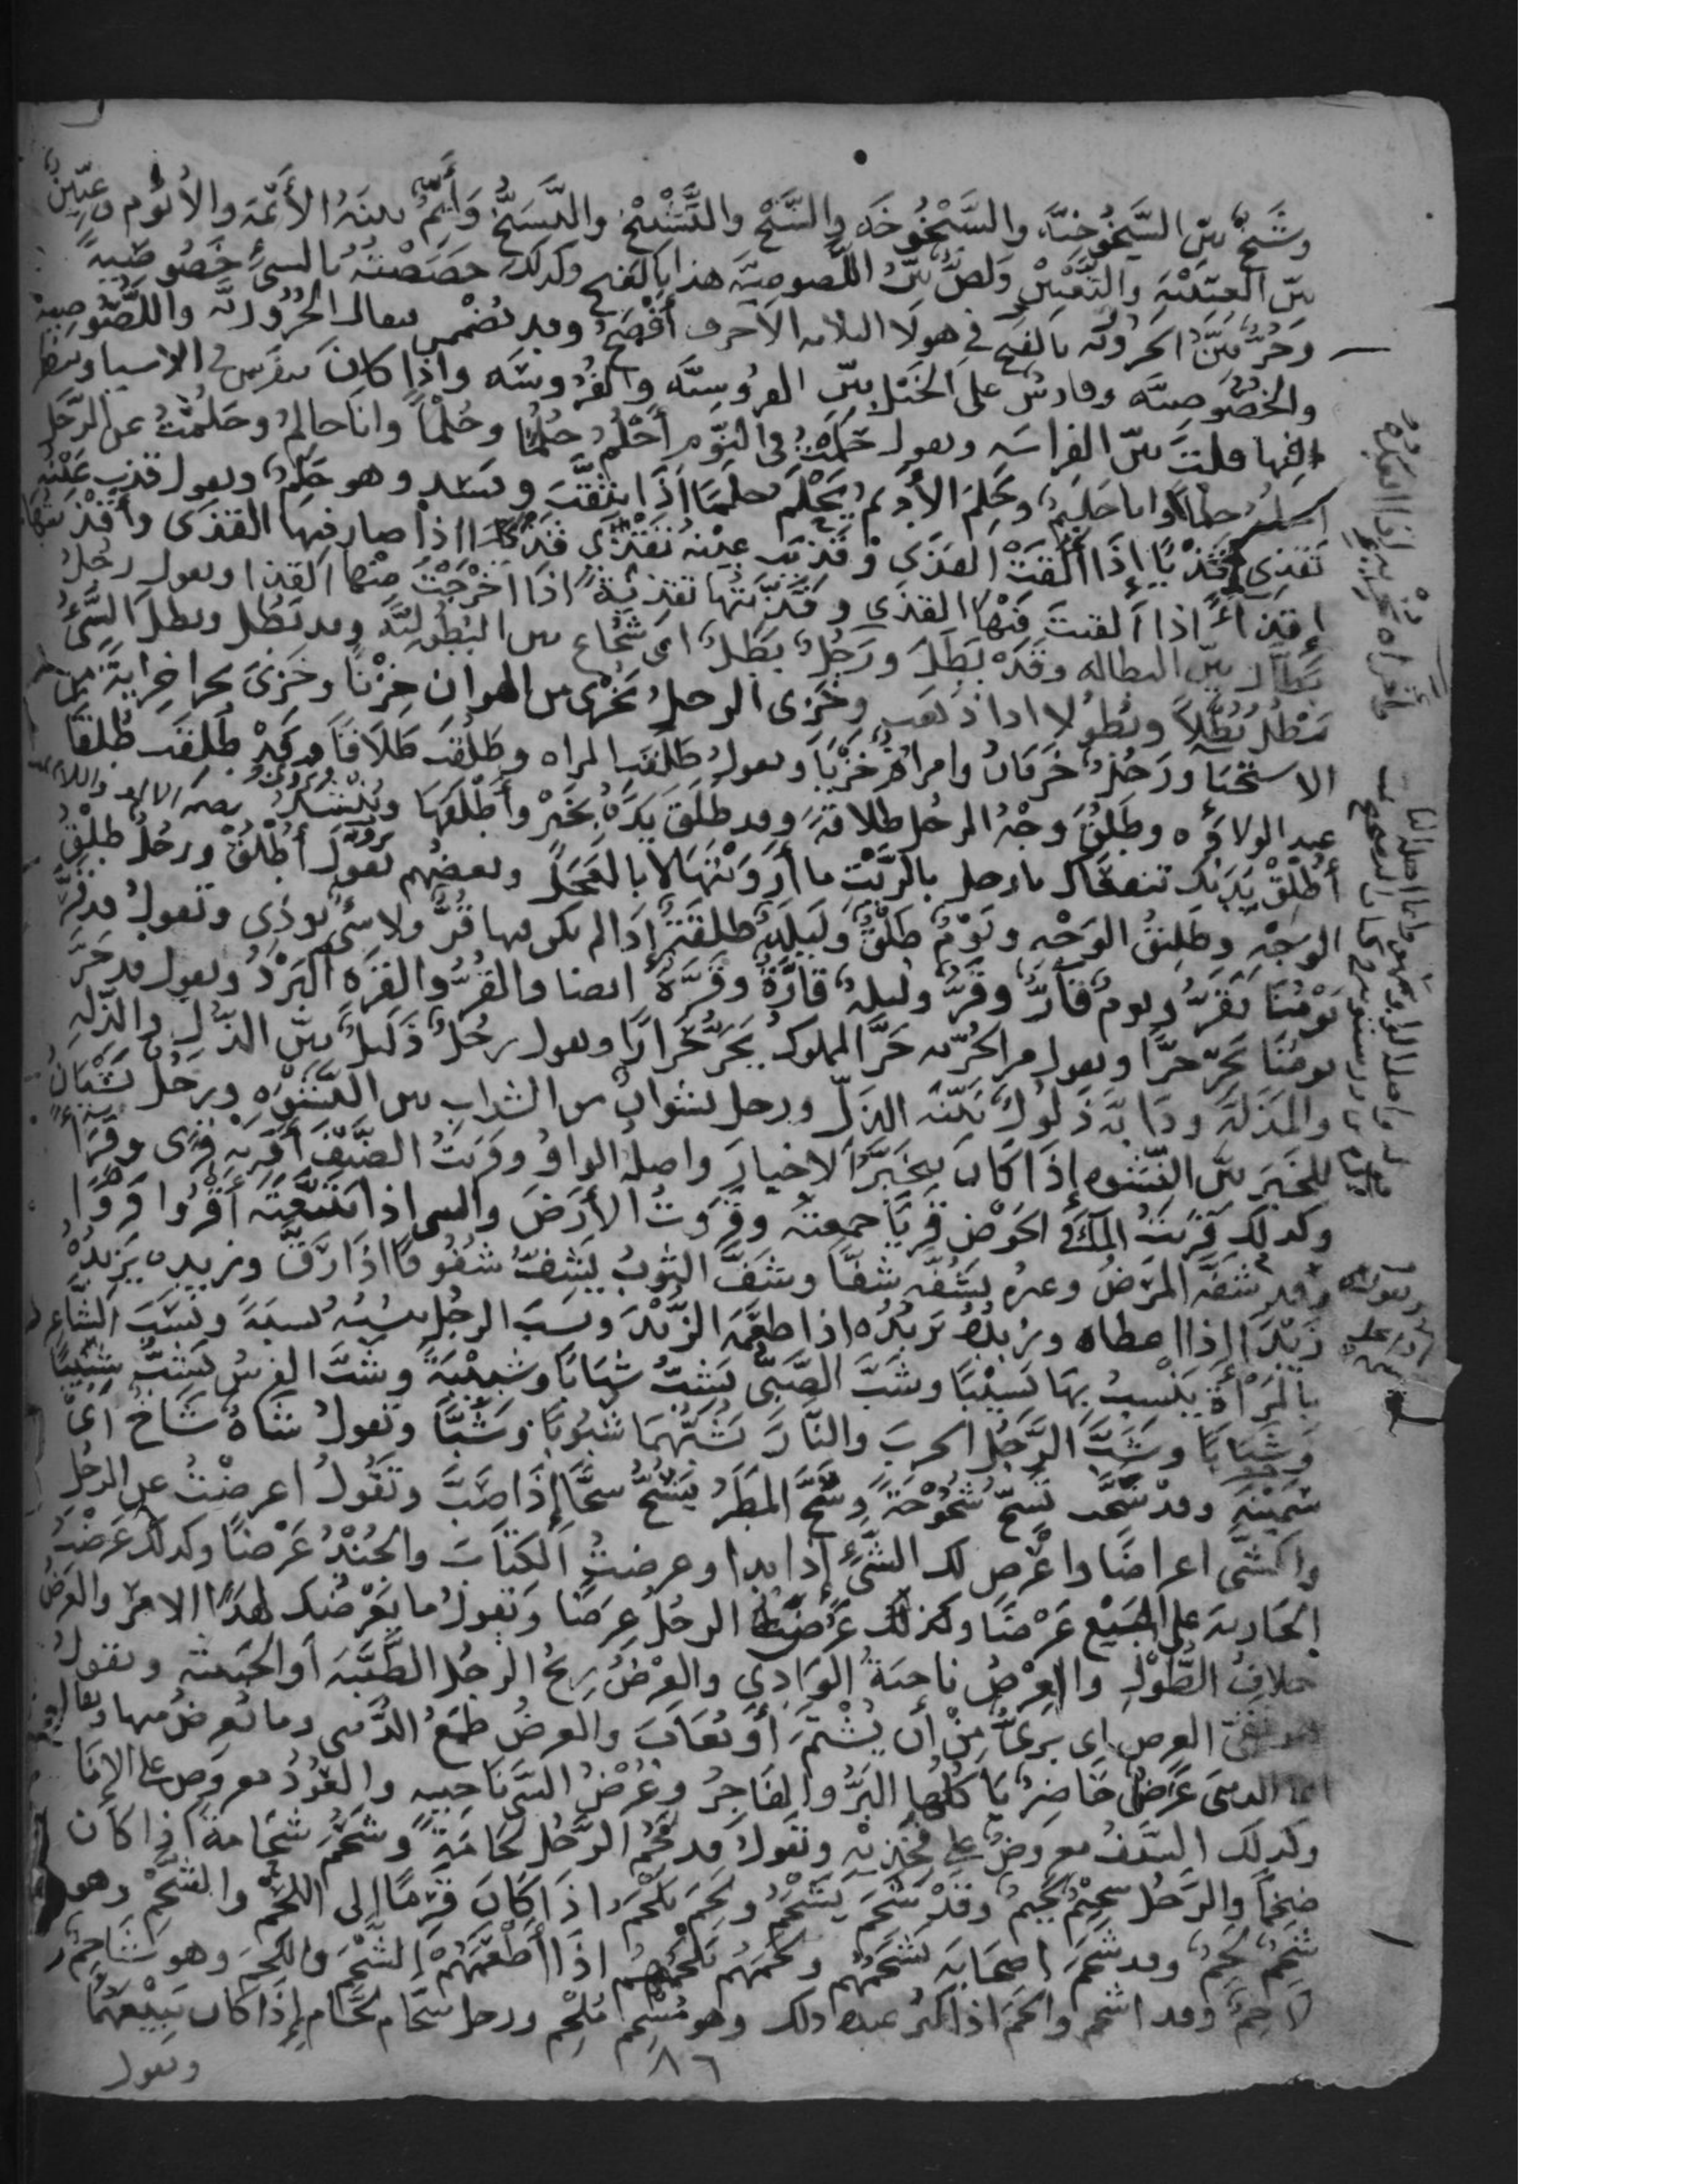 وشيخ بين الشيخوخية والشيخوخة والشيخ والتشييخ والتشيخ وأيم بينة الأيمة والأيوم وعنين
بين العنينة والتعنين ولص بين اللصوصية هذا بالفتح وكذلك خصصته بالشئ خصوصية
وحر بين الحرورية بالفتح في هولا الثلاثة الأحرف أفصح وقد تضمن فيقال الحرورية واللصوصية
والخصوصية وفارس على الخيل بين الفروسية والفروسة وإذا كان يتفرس في الاشيا وينظر
فيها قلت بين الفراسة وتقول حلمت في النوم أحلم حلما وحلما وانا حالم وحلمت عن الرجل
احلم حلما وانا حليم وحلم الأديم يحلم حلما اذا تثقب وفسد وهو حلم وتقول قذت عينه
تقذي قذيا إذا ألقت القذى وقذيت عينه تقذى قذى اذا صار فيها القذى وأقذيتها
إقذاء اذا ألقيت فيها القذى وقذيتها تقذية اذا اخرجت منها القذا وتقول رجل
بطال بين البطالة وقد بطل ورجل بطل اي شجاع بين البطولية وقد بطل وبطل الشئ
يبطل بطلا وبطولا اذا ذهب وخزي الرجل يخزى من الهوان خزيا وخزي يخزا خزاية من
الاستحيا ورجل خزيان وامراة خزيا وتقول طلقت المراه وطلقت طلاقا وقد طلقت طلقا
عند الولادة وطلق وجه الرجل طلاقة وقد طلق يده بخير وأطلقها وينشد
أطلق يديك تنفعاك يا رجل بالريث ما أرويتها لا بالعجل وبعضهم يقول أطلق ورجل طلق
الوجه وطليق الوجه ويوم طلق وليلة طلقة إذا لم يكن فيها قر ولا شئ يوذي وتقول قد قر
يومنا يقر ويوم قار وقر وليلة قارة وقرة ايضا والقر والقرة البرد وتقول قد حر
يومنا يحر حرا وتقول من الحرية حر المملوك يحر حرارا وتقول رجل ذليل بين الذل والذلة
والمذلة ودابة ذلول بينة الذل ورجل نشوان من الشراب بين النشوة ورجل نشيان
للخبر بين النشوة إذا كان يتخبر الاخبار واصله الواو وقريت الضيف أقريه قرى وقراء
وكذلك قريت الماء في الحوض قريا جمعته وقروت الأرض والشي اذا تتبعته أقروا قروا
وقد شفه المرض وغيره يشفه شفا وشف الثوب يشف شفوفا اذا رق وزبده يزبده
زبدا اذا اعطاه وزبده يزبده اذا طعمه الزبد ونسب الرجل ينسبه نسبة ونسب الشاعر
بالمرأة ينسب بها نسيبا وشب الصبي يشب شبابا وشبيبة وشب الفرس يشب شبيبا
وشبابا وشب الرجل الحرب والنار يشبهما شبوبا وشبا وتقول شاة ساح اي
سمينة وقد سحت تسح سحوحة وسح المطر يسح سحا إذا صب وتقول اعرضت عن الرجل
والشي اعراضا واعرض لك الشئ إذا بدا وعرضت الكتاب والجند عرضا وكذلك عرضت
الجارية على البيع عرضا وكذلك عرضت الرجل عرضا وتقول ما يعرضك لهذا الامر والعرض
خلاف الطول والعرض ناحية الوادي والعرض ريح الرجل الطيبة أو الخبيثة وتقول
هو نقي العرض اي بري من أن يشتم أو يعاب والعرض طمع الدنيا وما يعرض منها
الدنيا عرض حاضر يأكل منها البر والفاجر وعرض الشي ناحيته والعود معروض على الإنا
وكذلك السيف معروض على فخذيه وتقول قد لحم الرجل لحامة وشحم شحامة اذا كان
ضخما والرجل شحيم لحيم وقد شحم يشحم ولحم يلحم اذا كان قرما إلى اللحم والشحم وهو
شحم لحم وقد شحم اصحابه يشحمهم ولحمهم يلحمهم اذا أطعمهم الشحم واللحم وهو شاحم
لاحم وقد اشحم والحم اذا كثر عنده ذلك وهو مشحم ملحم ورجل شحام لحام إذا كان يبيعهما
وتقول
٨٦